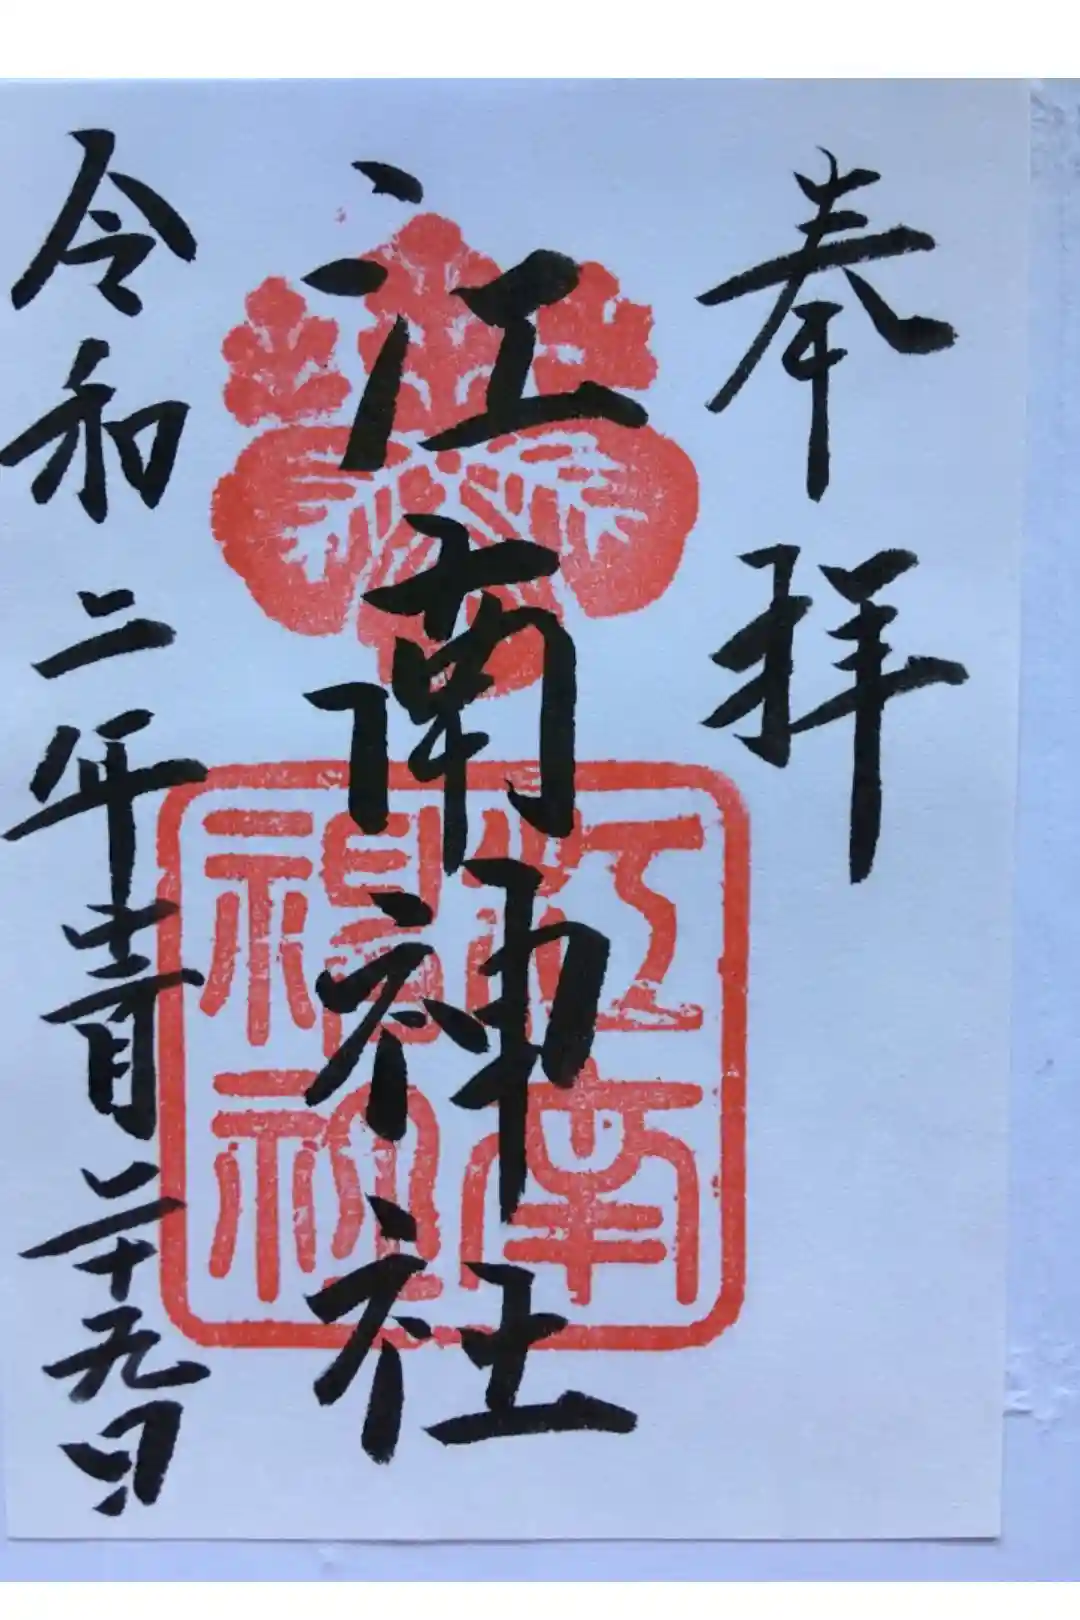 奉拝
江南神社
江南
神社
令和二年十二月二十九日